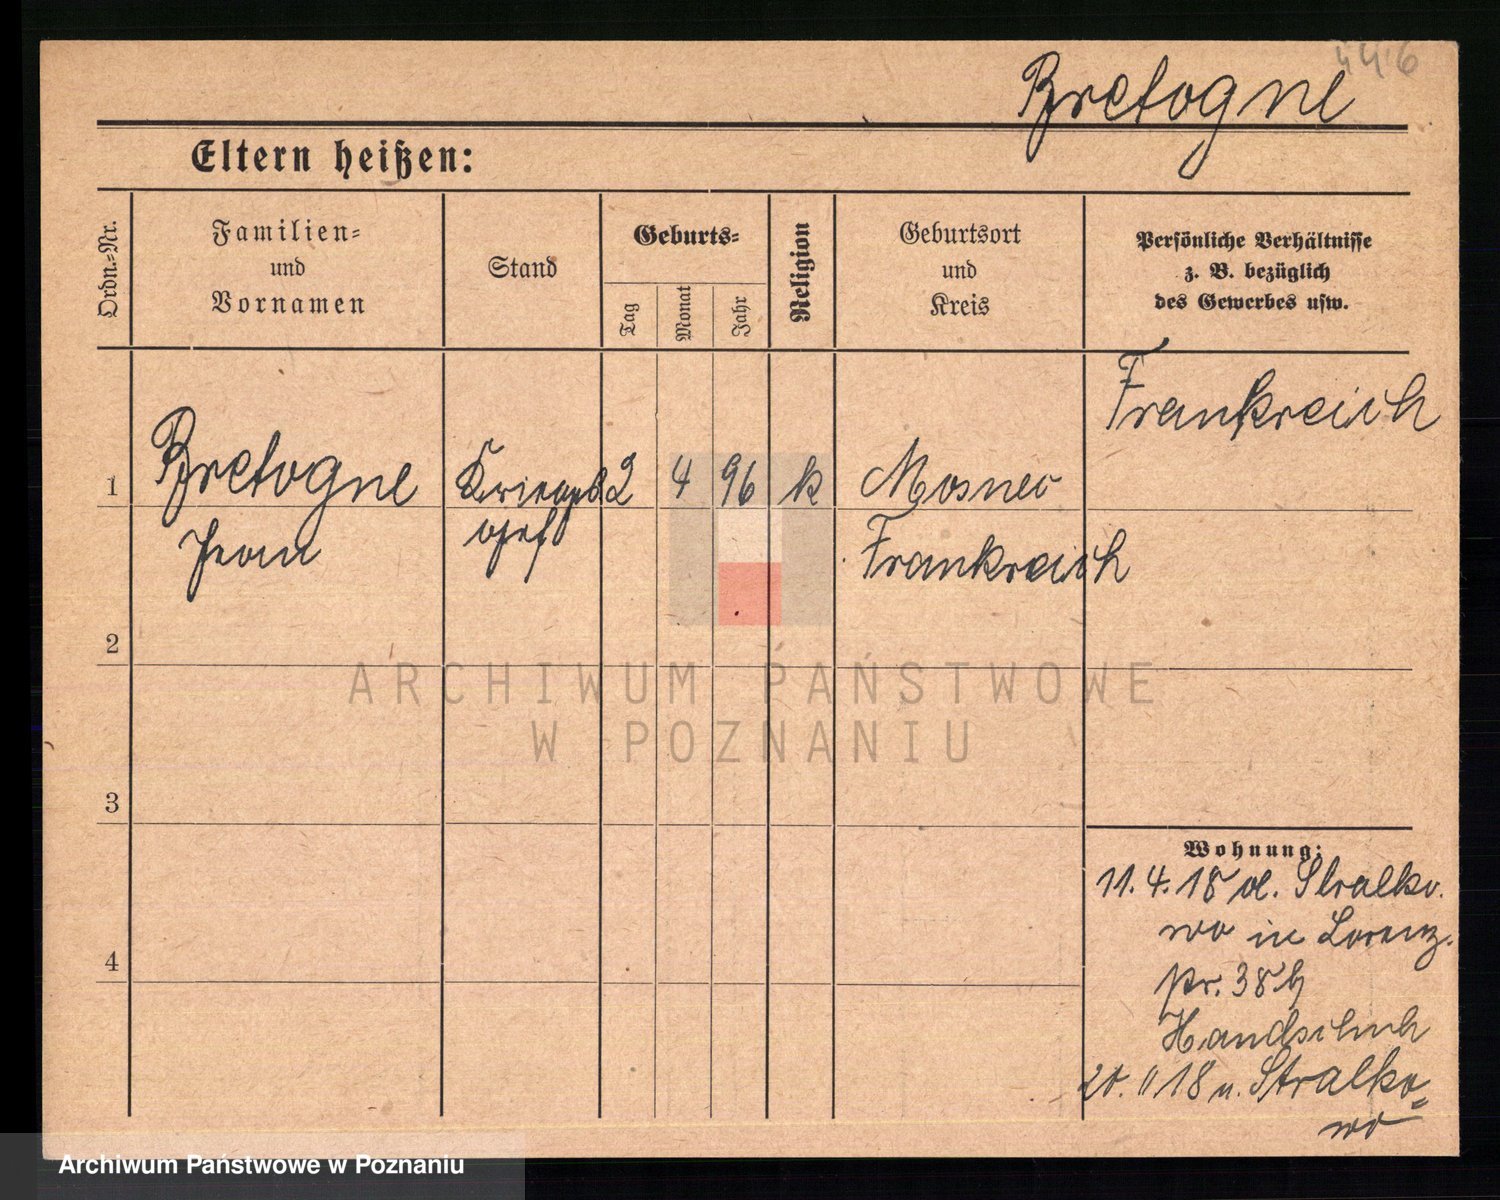 446
Bretogne
Eltern heißen:
Ordn.-Nr.
Familien-
und
Vornamen
Stand
Geburts-
Tag
Monat
Jahr
Religion
Geburtsort
und
Kreis
Persönliche Verhältnisse
z. B. bezüglich
des Gewerbes usw.
Frankreich
1
Bretogne
Jean
2 4 96 k
Frankreich
2
3
4
Wohnung:
11.4.18 v. Stralko.
wo in Lorenz.
str. 38 b
Handschuh
18 n. Stralko=
wo
ARCHIWUM PAŃSTWOWE
W POZNANIU
Archiwum Państwowe w Poznaniu